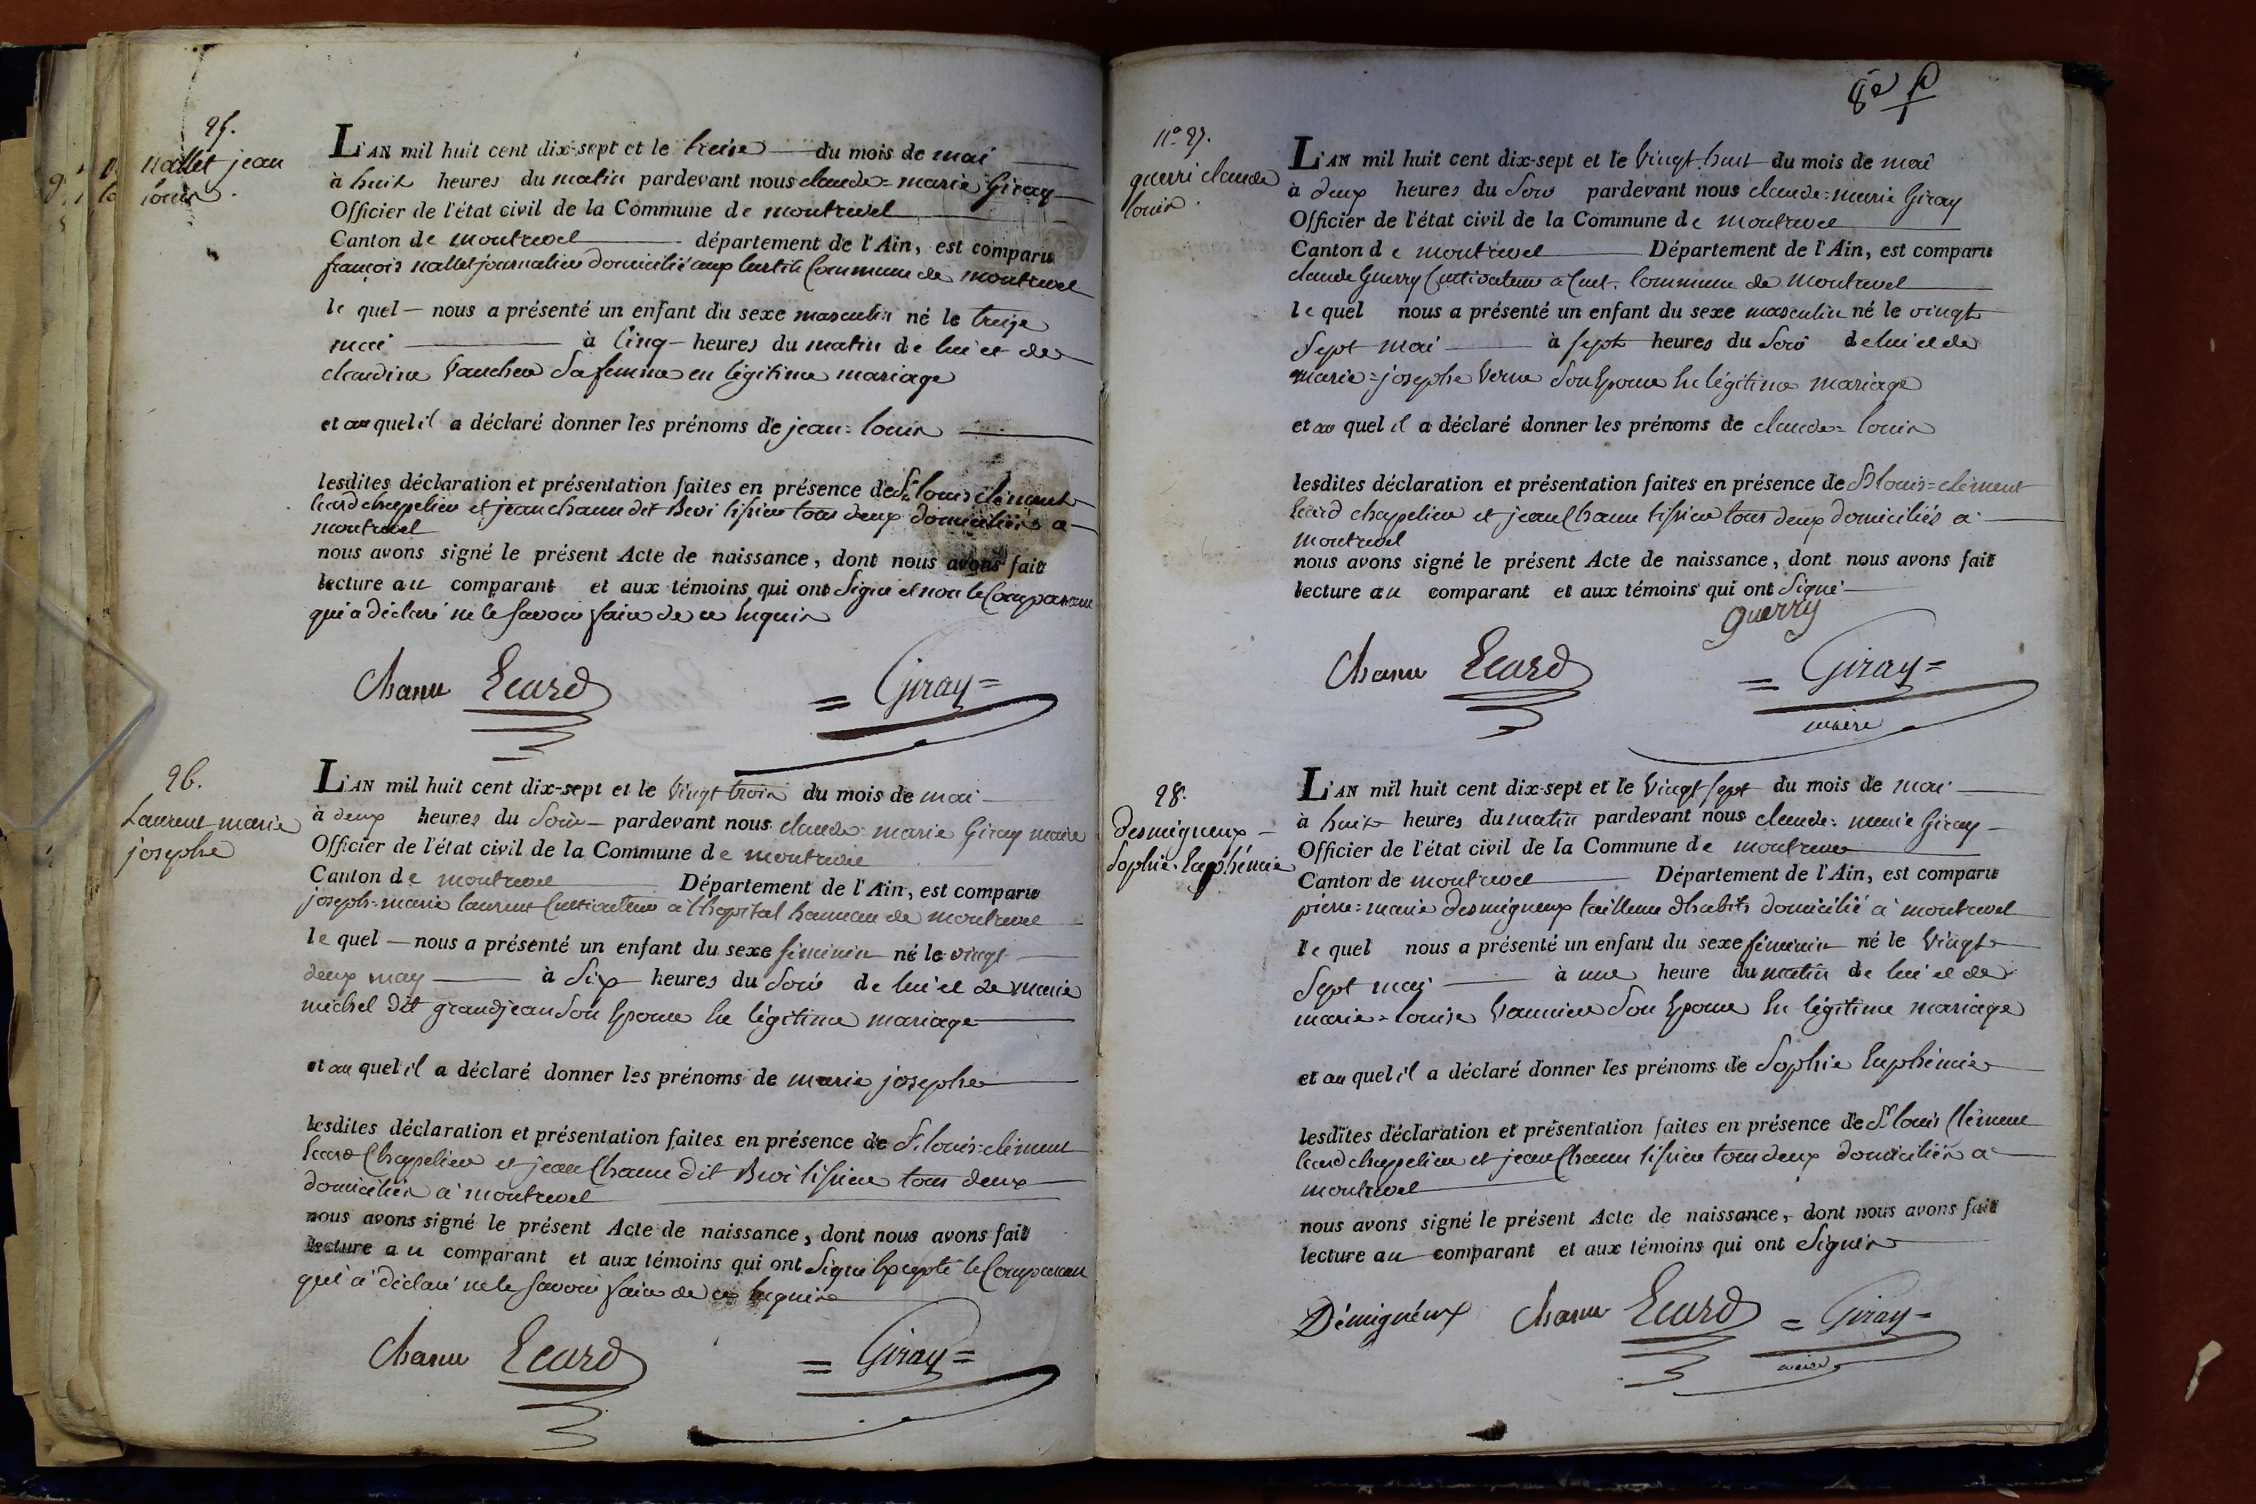 25.
nallet jean
louis.
L'AN mil huit cent dix-sept et le treize du mois de mai
à huit heures du matin pardevant nous claude=marie Giray
Officier de l'état civil de la Commune de montrevel
Canton de montrevel département de l'Ain, est comparu
françois nallet journalier domicilié aux Commune de montrevel
le quel nous a présenté un enfant du sexe masculin né le treize
mai à Cinq heures du matin de lui et de
claudine Vaucher Sa femme en légitime mariage
et au quel il a déclaré donner les prénoms de jean=louis
lesdites déclaration et présentation faites en présence de Sr. louis clément
Ecard chapelier et jean chanu dit Broi tissier tous deux domiciliés a
montrevel
nous avons signé le présent Acte de naissance, dont nous avons fait
lecture au comparant et aux témoins qui ont Signé et non le Comparant
qui a déclaré ne le Savoir faire de ce Enquis
Chanu Ecard = Giray =
26.
Laurent marie
josephe
L'AN mil huit cent dix-sept et le Vingt trois du mois de mai
à deux heures du Soir pardevant nous claude marie Giray maire
Officier de l'état civil de la Commune de montrevel
Canton de montrevel Département de l'Ain, est comparu
joseph=marie laurent Cultivateur à l'hopital hameau de montrevel
le quel nous a présenté un enfant du sexe féminin né le vingt
deux may à Six heures du Soir de lui et de marie
michel dit grandjean Son Epouse En légitime mariage
et au quel il a déclaré donner les prénoms de marie josephe
lesdites déclaration et présentation faites en présence de Sr. louis=clément
Ecard Chapelier et jean Chanu dit Broi tissier tous deux
domiciliés à montrevel
nous avons signé le présent Acte de naissance, dont nous avons fait
lecture au comparant et aux témoins qui ont Signé Excepté le Comparant
qui a déclaré ne le Savoir faire de ce Enquis
Chanu Ecard = Giray =
8e f
no. 27.
guerri claude
louis.
L'AN mil huit cent dix-sept et le Vingt huit du mois de mai
à deux heures du Soir pardevant nous claude=marie Giray
Officier de l'état civil de la Commune de montrevel
Canton de montrevel Département de l'Ain, est comparu
claude Guerry Cultivateur à Cuet. Commune de Montrevel
le quel nous a présenté un enfant du sexe masculin né le vingt
Sept mai à sept heures du Soir de lui et de
marie=josephe Verne Son Epouse En légitime mariage
et au quel il a déclaré donner les prénoms de claude=louis
lesdites déclaration et présentation faites en présence de Sr louis=clément
Ecard chapelier et jean Chanu tissier tous deux domiciliés a
montrevel
nous avons signé le présent Acte de naissance, dont nous avons fait
lecture au comparant et aux témoins qui ont Signé
guerry
Chanu Ecard = Giray =
maire
28.
desmigneux
Sophie Euphémie
L'AN mil huit cent dix-sept et le Vingt sept du mois de mai
à huit heures du matin pardevant nous claude=marie Giray
Officier de l'état civil de la Commune de montrevel
Canton de montrevel Département de l'Ain, est comparu
pierre=marie desmigneux tailleur d'habits domicilié à montrevel
le quel nous a présenté un enfant du sexe féminin né le Vingt
Sept mai à une heure du matin de lui et de
marie=louise Vannier Son Epouse En légitime mariage
et au quel il a déclaré donner les prénoms de Sophie Euphémie
lesdites déclaration et présentation faites en présence de Sr louis Clément
Ecard chapelier et jean Chanu tissier tous deux domiciliés a
montrevel
nous avons signé le présent Acte de naissance, dont nous avons fait
lecture au comparant et aux témoins qui ont Signés
Démignéux Chanu Ecard = Giray =
maire